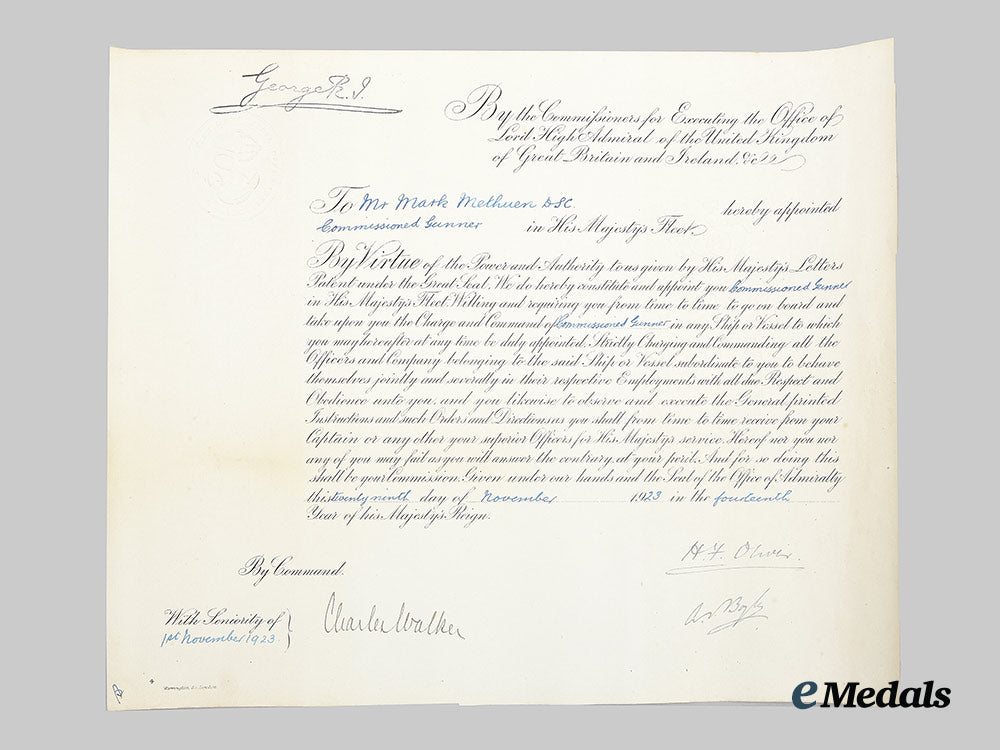 George R.I.
By the Commissioners for Executing the Office of
Lord High Admiral of the United Kingdom
of Great Britain and Ireland &c &c
To Mr Mark Methuen DSC. hereby appointed
Commissioned Gunner in His Majesty's Fleet.
By Virtue of the Power and Authority to us given by His Majesty's Letters
Patent under the Great Seal, We do hereby constitute and appoint you Commissioned Gunner
in His Majesty's Fleet. Willing and requiring you from time to time to go on board and
take upon you the Charge and Command of Commissioned Gunner in any Ship or Vessel to which
you may hereafter at any time be duly appointed. Strictly Charging and Commanding all the
Officers and Company belonging to the said Ship or Vessel subordinate to you to behave
themselves jointly and severally in their respective Employments with all due Respect and
Obedience unto you, and you likewise to observe and execute the General printed
Instructions and such Orders and Directions as you shall from time to time receive from your
Captain or any other your superior Officers for His Majesty's service. Hereof nor you nor
any of you may fail as you will answer the contrary at your peril. And for so doing this
shall be your Commission. Given under our hands and the Seal of the Office of Admiralty
this twenty ninth day of November 1923 in the fourteenth
Year of his Majesty's Reign.
H. F. Oliver.
By Command.
With Seniority of
1st November 1923.
Charles Walker
London
eMedals